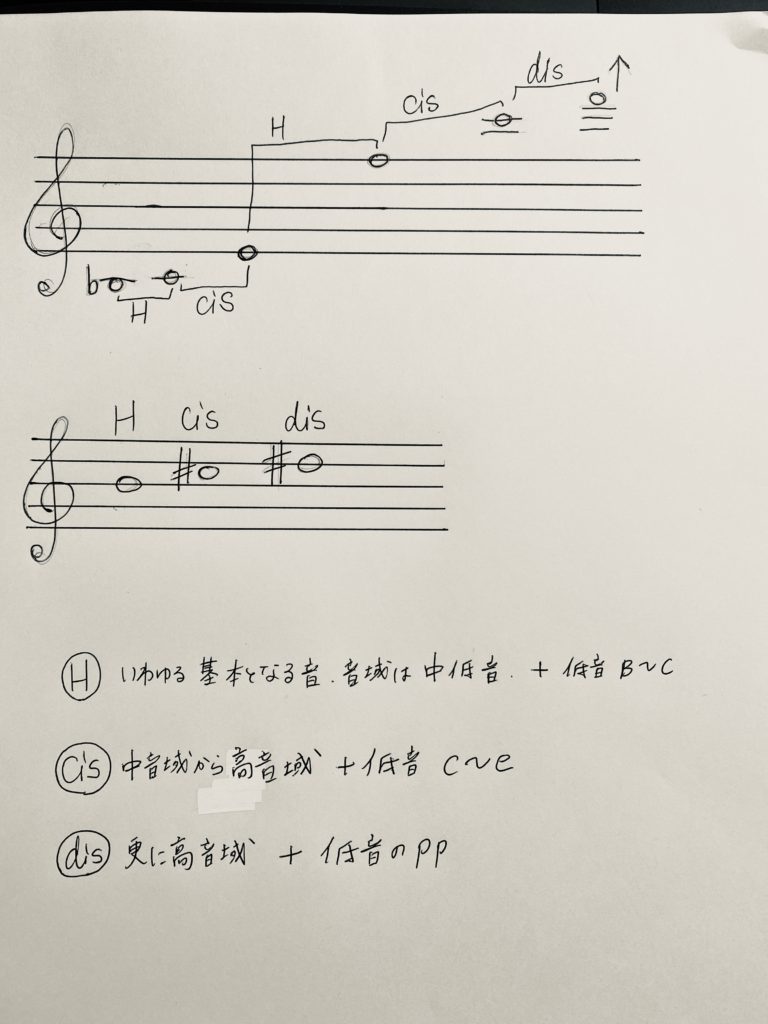 dis ↑
cis
H
b H cis
H cis dis
# #
H いわゆる基本となる音.音域は中低音. + 低音 B〜C
cis 中音域から高音域 + 低音 C〜e
dis 更に高音域 + 低音のpp